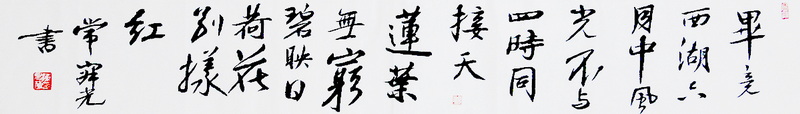 畢竟
西湖六
月中風
光不与
四時同
接天
蓮葉
無窮
碧映日
荷花
別樣
紅
常 光
書